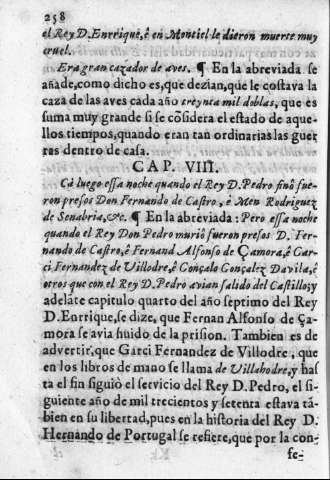 258
el Rey D. Enrrique, é en Montiel le dieron muerte muy
cruel.
Era gran cazador de aves. ¶ En la abreviada se
añade, como dicho es, que dezian, que le costava la
caza de las aves cada año treynta mil doblas, que es
suma muy grande si se cõsidera el estado de aque-
llos tiempos, quando eran tan ordinarias las guer
ras dentro de casa.
CAP. VIII.
Cà luego essa noche quando el Rey D. Pedro finò fue
ron presos Don Fernando de Castro, é Men Rodriguez
de Senabria, &c. ¶ En la abreviada: Pero essa noche
quando el Rey Don Pedro murió fueron presos D. Fer-
nando de Castro, é Fernand Alfonso de Çamora, é Gar-
ci Fernandez de Villodre, é Gonçalo Gonçalez Davila, é
otros que con el Rey D. Pedro avian salido del Castillo; y
adelãte capitulo quarto del año septimo del Rey
D. Enrrique, se dize, que Fernan Alfonso de Ça-
mora se avia huido de la prision. Tambien es de
advertir, que Garci Fernandez de Villodre, que
en los libros de mano se llama de Villahodre, y has
ta el fin siguiò el servicio del Rey D. Pedro, el si-
guiente año de mil trecientos y setenta estava tã-
bien en su libertad, pues en la historia del Rey D.
Hernando de Portugal se refiere, que por la con-
se-